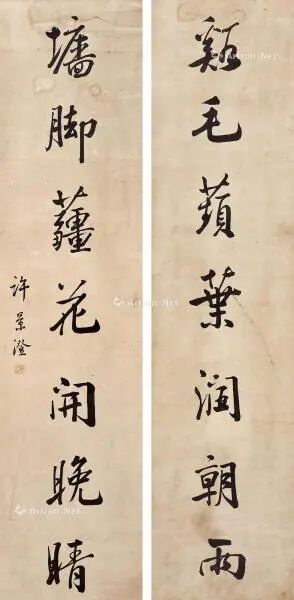 谿毛蘋葉潤朝雨
墻脚薑花開晚晴
許景澄
Artron.Net